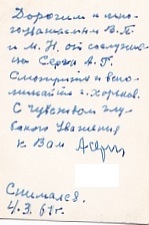 Дорогим и мно-
гоуважаемым В.П.
и М.Н. от сослужив-
цы Серги А.Г.
Смотрите и вспо-
минайте г. Харьков.
С чувством глу-
бокого уважения
к Вам
Снимался.
4/3. 61 г.